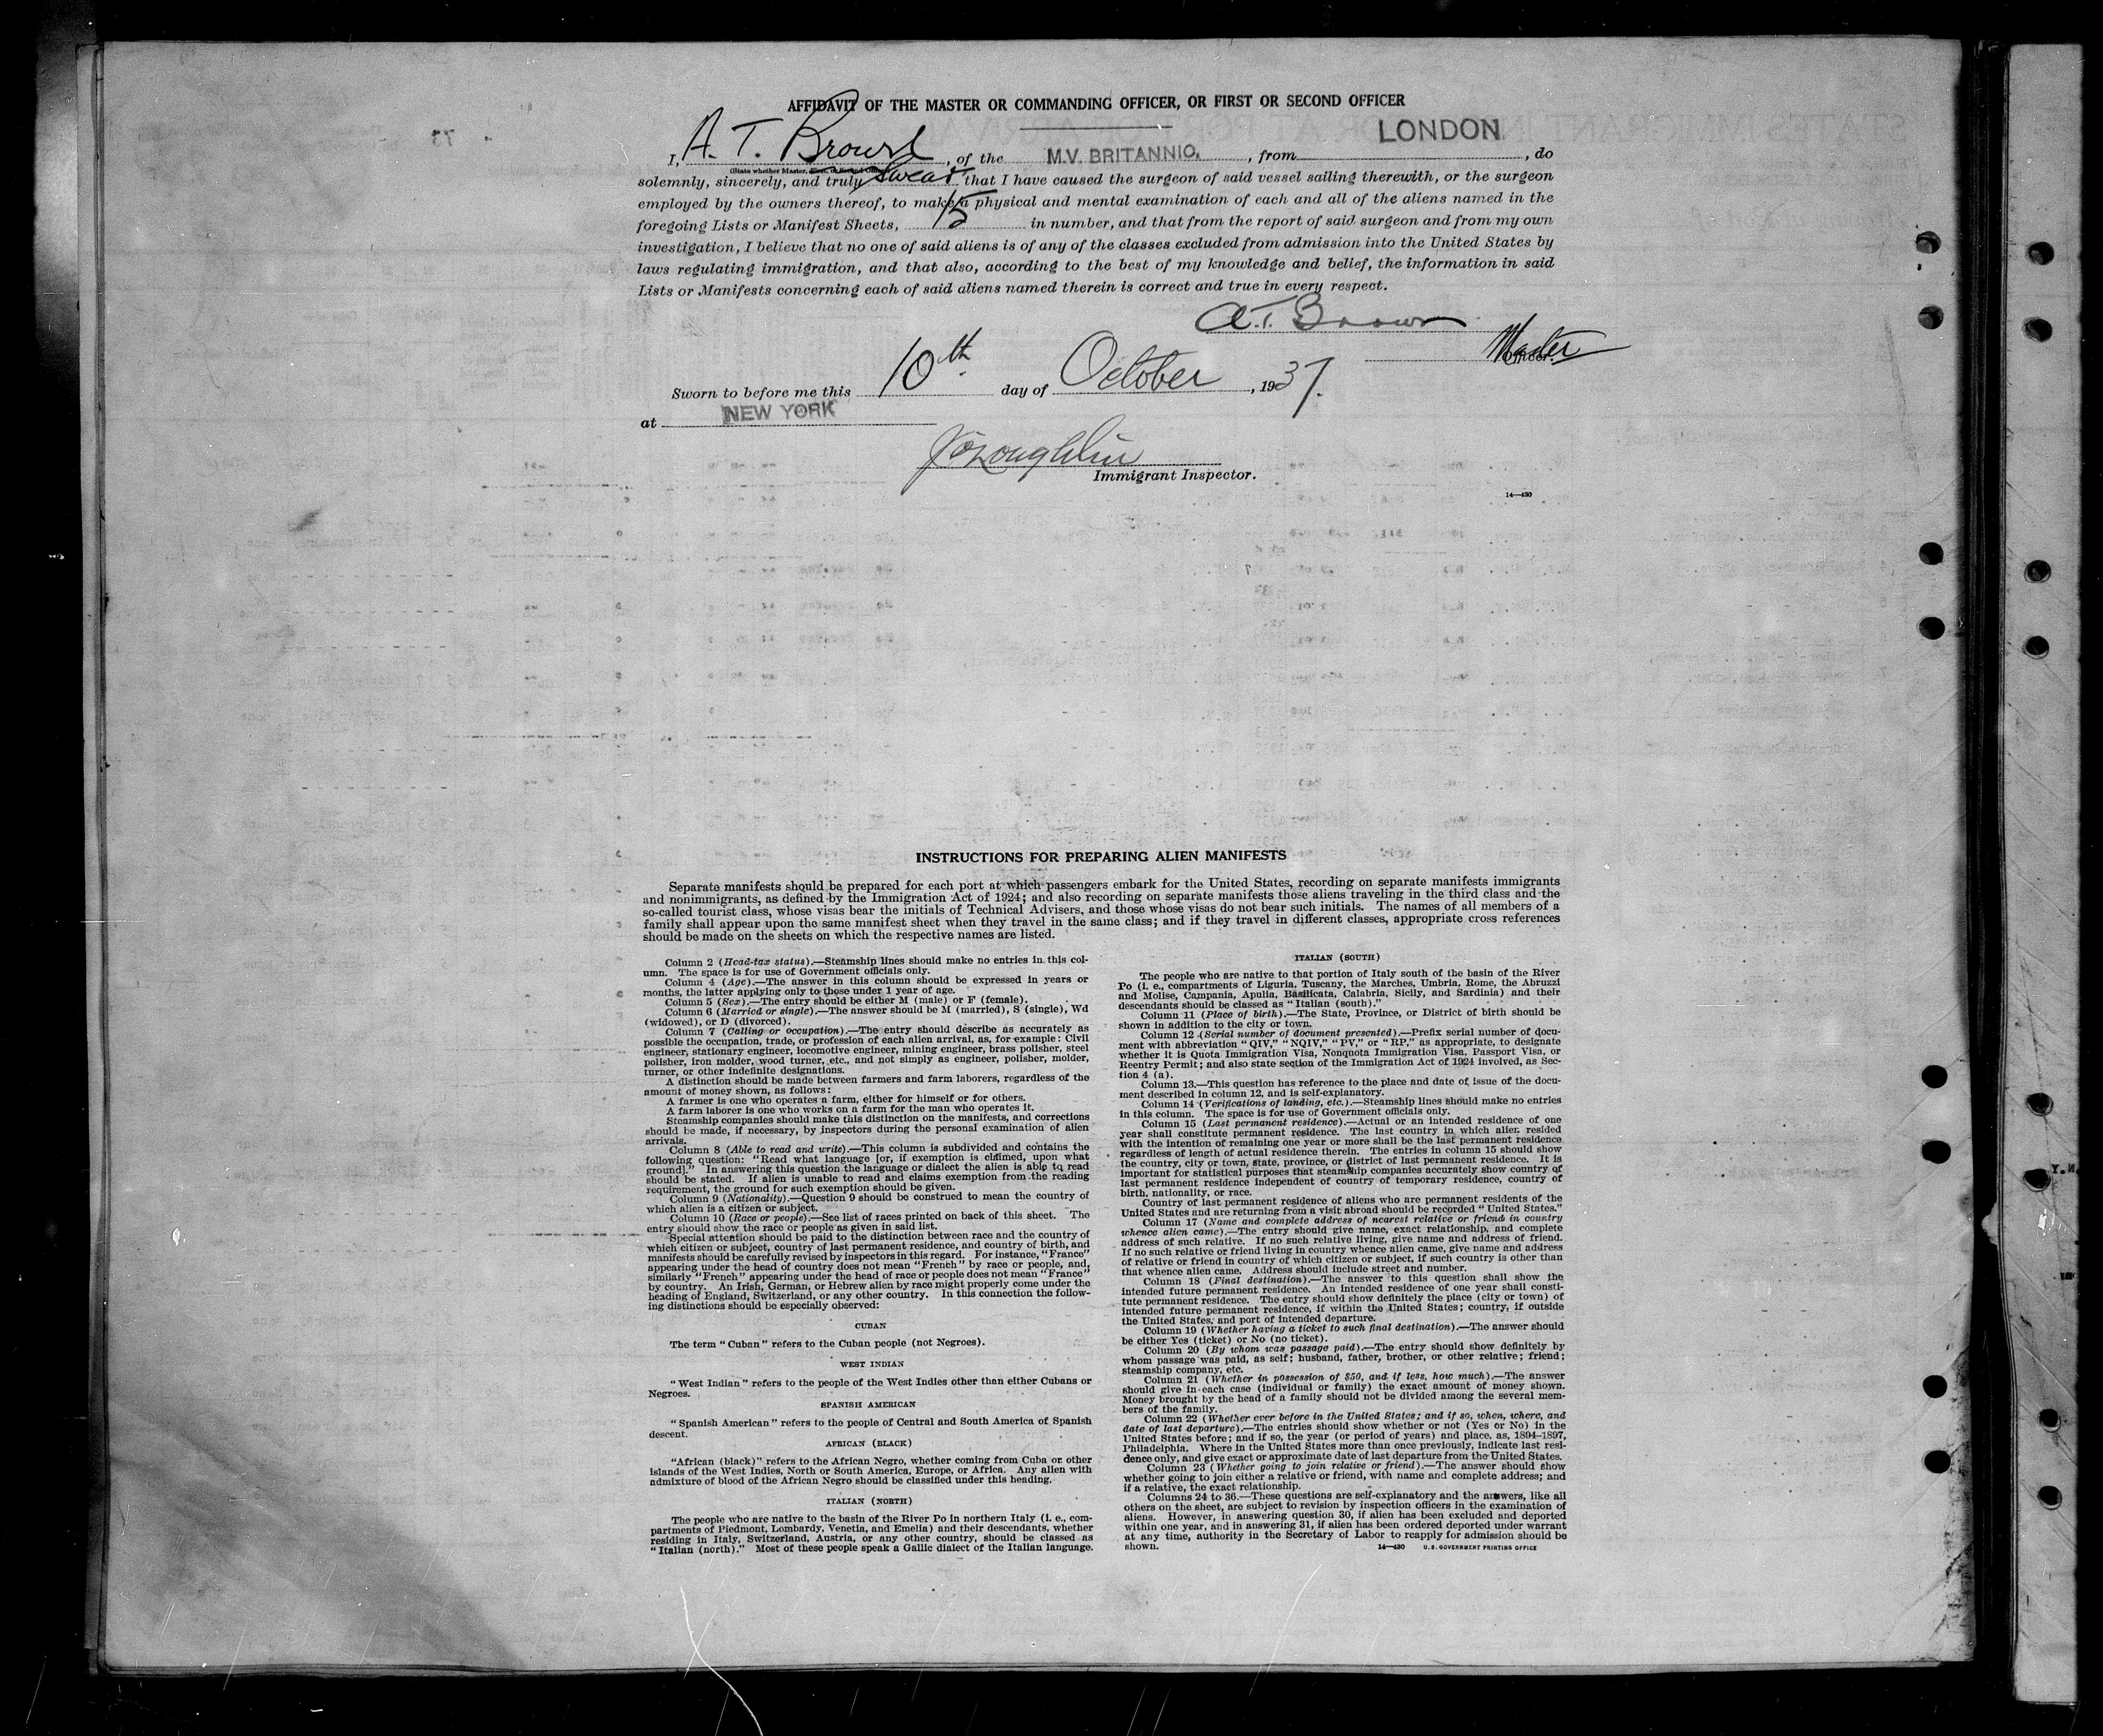 AFFIDAVIT OF THE MASTER OR COMMANDING OFFICER, OR FIRST OR SECOND OFFICER
I, A. T. Brown, of the M.V. BRITANNIC, from LONDON, do
(State whether Master, First, or Second Officer)
solemnly, sincerely, and truly swear that I have caused the surgeon of said vessel sailing therewith, or the surgeon
employed by the owners thereof, to make a physical and mental examination of each and all of the aliens named in the
foregoing Lists or Manifest Sheets, 15 in number, and that from the report of said surgeon and from my own
investigation, I believe that no one of said aliens is of any of the classes excluded from admission into the United States by
laws regulating immigration, and that also, according to the best of my knowledge and belief, the information in said
Lists or Manifests concerning each of said aliens named therein is correct and true in every respect.
A.T. Brown
Master
Officer.
Sworn to before me this 10th day of October, 1937.
at NEW YORK
Immigrant Inspector.
14—430
INSTRUCTIONS FOR PREPARING ALIEN MANIFESTS
Separate manifests should be prepared for each port at which passengers embark for the United States, recording on separate manifests immigrants
and nonimmigrants, as defined by the Immigration Act of 1924; and also recording on separate manifests those aliens traveling in the third class and the
so-called tourist class, whose visas bear the initials of Technical Advisers, and those whose visas do not bear such initials. The names of all members of a
family shall appear upon the same manifest sheet when they travel in the same class; and if they travel in different classes, appropriate cross references
should be made on the sheets on which the respective names are listed.
Column 2 (Head-tax status).—Steamship lines should make no entries in this col-
umn. The space is for use of Government officials only.
Column 4 (Age).—The answer in this column should be expressed in years or
months, the latter applying only to those under 1 year of age.
Column 5 (Sex).—The entry should be either M (male) or F (female).
Column 6 (Married or single).—The answer should be M (married), S (single), Wd
(widowed), or D (divorced).
Column 7 (Calling or occupation).—The entry should describe as accurately as
possible the occupation, trade, or profession of each alien arrival, as, for example: Civil
engineer, stationary engineer, locomotive engineer, mining engineer, brass polisher, steel
polisher, iron molder, wood turner, etc., and not simply as engineer, polisher, molder,
turner, or other indefinite designations.
A distinction should be made between farmers and farm laborers, regardless of the
amount of money shown, as follows:
A farmer is one who operates a farm, either for himself or for others.
A farm laborer is one who works on a farm for the man who operates it.
Steamship companies should make this distinction on the manifests, and corrections
should be made, if necessary, by inspectors during the personal examination of alien
arrivals.
Column 8 (Able to read and write).—This column is subdivided and contains the
following question: "Read what language [or, if exemption is claimed, upon what
ground]." In answering this question the language or dialect the alien is able to read
should be stated. If alien is unable to read and claims exemption from the reading
requirement, the ground for such exemption should be given.
Column 9 (Nationality).—Question 9 should be construed to mean the country of
which alien is a citizen or subject.
Column 10 (Race or people).—See list of races printed on back of this sheet. The
entry should show the race or people as given in said list.
Special attention should be paid to the distinction between race and the country of
which citizen or subject, country of last permanent residence, and country of birth, and
manifests should be carefully revised by inspectors in this regard. For instance, "France"
appearing under the head of country does not mean "French" by race or people, and,
similarly "French" appearing under the head of race or people does not mean "France"
by country. An Irish, German, or Hebrew alien by race might properly come under the
heading of England, Switzerland, or any other country. In this connection the follow-
ing distinctions should be especially observed:
CUBAN
The term "Cuban" refers to the Cuban people (not Negroes).
WEST INDIAN
"West Indian" refers to the people of the West Indies other than either Cubans or
Negroes.
SPANISH AMERICAN
"Spanish American" refers to the people of Central and South America of Spanish
descent.
AFRICAN (BLACK)
"African (black)" refers to the African Negro, whether coming from Cuba or other
islands of the West Indies, North or South America, Europe, or Africa. Any alien with
admixture of blood of the African Negro should be classified under this heading.
ITALIAN (NORTH)
The people who are native to the basin of the River Po in northern Italy (i. e., com-
partments of Piedmont, Lombardy, Venetia, and Emelia) and their descendants, whether
residing in Italy, Switzerland, Austria, or any other country, should be classed as
"Italian (north)." Most of these people speak a Gallic dialect of the Italian language.
ITALIAN (SOUTH)
The people who are native to that portion of Italy south of the basin of the River
Po (i. e., compartments of Liguria, Tuscany, the Marches, Umbria, Rome, the Abruzzi
and Molise, Campania, Apulia, Basilicata, Calabria, Sicily, and Sardinia) and their
descendants should be classed as "Italian (south)."
Column 11 (Place of birth).—The State, Province, or District of birth should be
shown in addition to the city or town.
Column 12 (Serial number of document presented).—Prefix serial number of docu-
ment with abbreviation "QIV," "NQIV," "PV," or "RP," as appropriate, to designate
whether it is Quota Immigration Visa, Nonquota Immigration Visa, Passport Visa, or
Reentry Permit; and also state section of the Immigration Act of 1924 involved, as Sec-
tion 4 (a).
Column 13.—This question has reference to the place and date of issue of the docu-
ment described in column 12, and is self-explanatory.
Column 14 (Verifications of landing, etc.).—Steamship lines should make no entries
in this column. The space is for use of Government officials only.
Column 15 (Last permanent residence).—Actual or an intended residence of one
year shall constitute permanent residence. The last country in which alien resided
with the intention of remaining one year or more shall be the last permanent residence
regardless of length of actual residence therein. The entries in column 15 should show
the country, city or town, state, province, or district of last permanent residence. It is
important for statistical purposes that steamship companies accurately show country of
last permanent residence independent of country of temporary residence, country of
birth, nationality, or race.
Country of last permanent residence of aliens who are permanent residents of the
United States and are returning from a visit abroad should be recorded "United States."
Column 17 (Name and complete address of nearest relative or friend in country
whence alien came).—The entry should give name, exact relationship, and complete
address of such relative. If no such relative living, give name and address of friend.
If no such relative or friend living in country whence alien came, give name and address
of relative or friend in country of which citizen or subject, if such country is other than
that whence alien came. Address should include street and number.
Column 18 (Final destination).—The answer to this question shall show the
intended future permanent residence. An intended residence of one year shall consti-
tute permanent residence. The entry should show definitely the place (city or town) of
intended future permanent residence, if within the United States; country, if outside
the United States, and port of intended departure.
Column 19 (Whether having a ticket to such final destination).—The answer should
be either Yes (ticket) or No (no ticket).
Column 20 (By whom was passage paid).—The entry should show definitely by
whom passage was paid, as self; husband, father, brother, or other relative; friend;
steamship company, etc.
Column 21 (Whether in possession of $50, and if less, how much).—The answer
should give in each case (individual or family) the exact amount of money shown.
Money brought by the head of a family should not be divided among the several mem-
bers of the family.
Column 22 (Whether ever before in the United States; and if so, when, where, and
date of last departure).—The entries should show whether or not (Yes or No) in the
United States before; and if so, the year (or period of years) and place, as, 1894-1897,
Philadelphia. Where in the United States more than once previously, indicate last resi-
dence only, and give exact or approximate date of last departure from the United States.
Column 23 (Whether going to join relative or friend).—The answer should show
whether going to join either a relative or friend, with name and complete address; and
if a relative, the exact relationship.
Columns 24 to 36.—These questions are self-explanatory and the answers, like all
others on the sheet, are subject to revision by inspection officers in the examination of
aliens. However, in answering question 30, if alien has been excluded and deported
within one year, and in answering 31, if alien has been ordered deported under warrant
at any time, authority in the Secretary of Labor to reapply for admission should be
shown.
14—430 U. S. GOVERNMENT PRINTING OFFICE